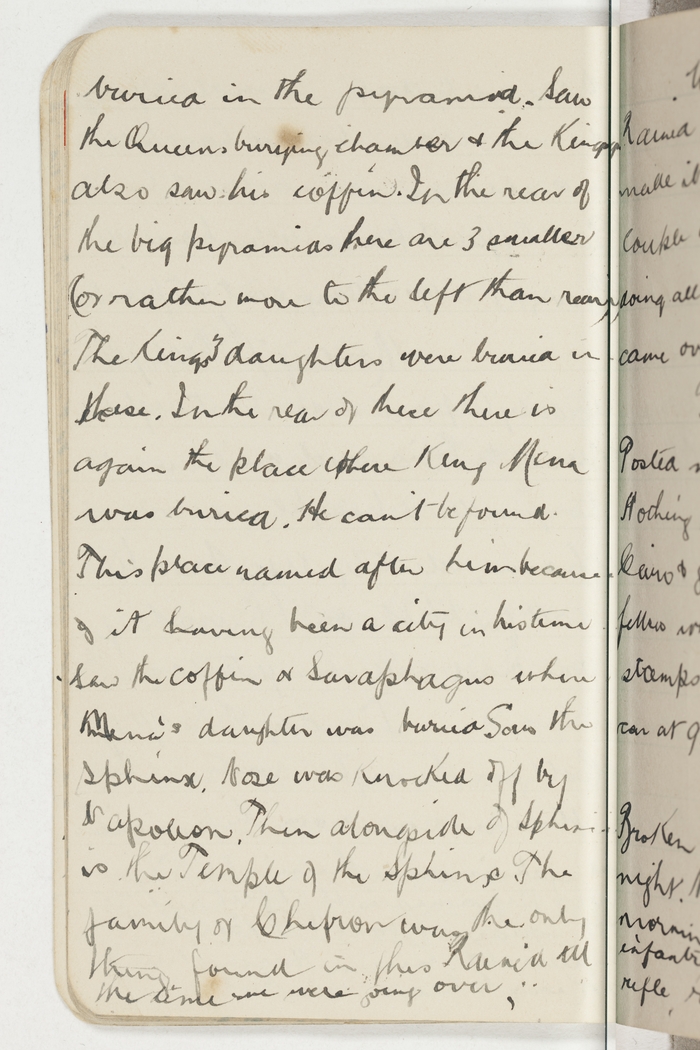 buried in the pyramid. Saw
the Queens burying chamber & the Kings
also saw his coffin. In the rear of
the big pyramids there are 3 smaller
(or rather more to the left than rear)
The Kings 3 daughters were buried in
these. In the rear of these there is
again the place where King Mena
was buried. He can't be found.
This place named after him because
of it having been a city in his time
Saw the coffin or Saraphagus where
Mena's daughter was buried Saw the
Sphinx. Nose was knocked off by
Napoleon. Then alongside of Sphinx
is the Temple of the Sphinx. The
family of Chefron was the only
thing found in this Rained all
the time we were going over
Rained
made it
couple
going all
came ov
Posted
Nothing
Cairo &
fellows
stamps
car at 9
Broken
night.
mornin
infantr
rifle